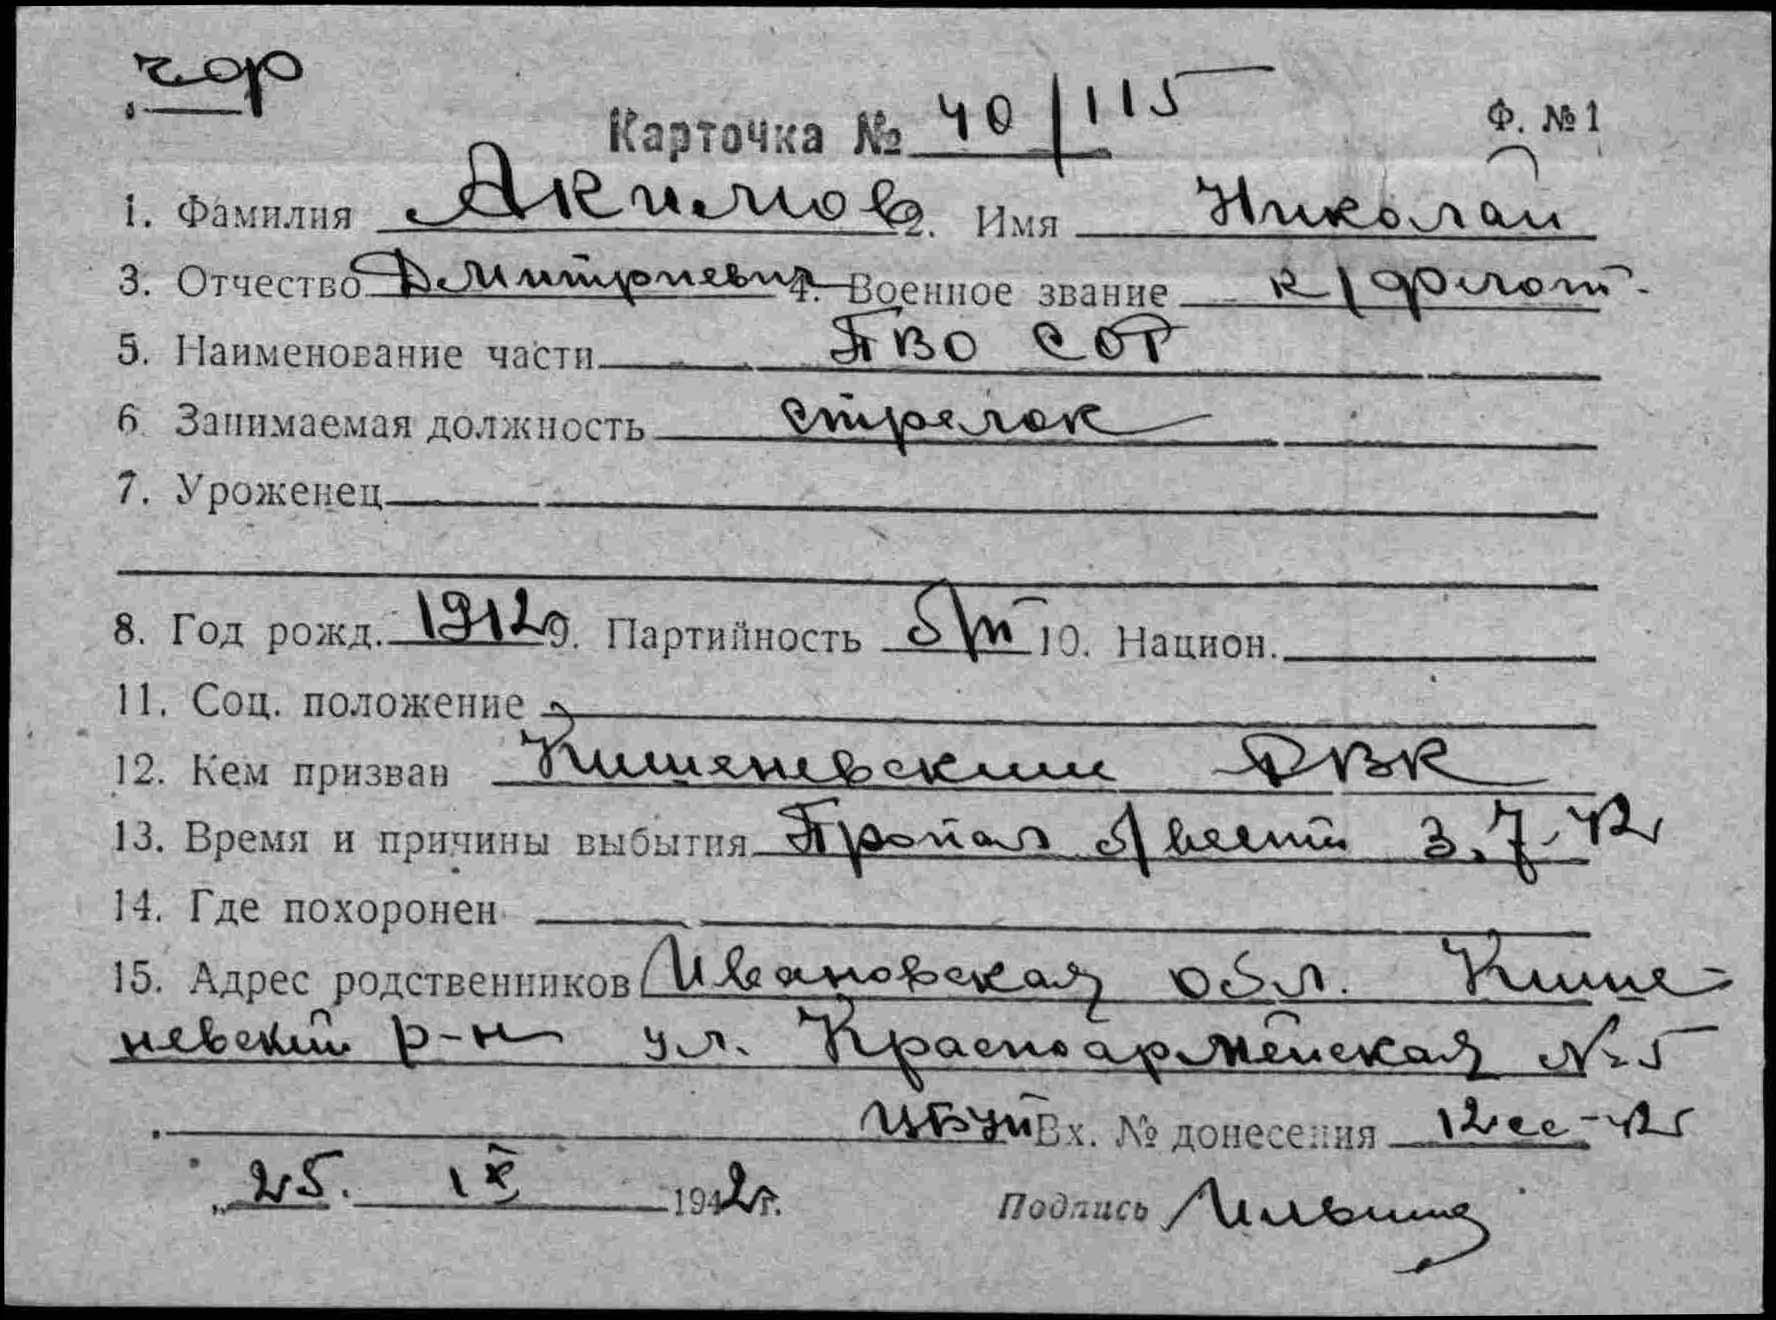 чор
Карточка № 40/115 Ф. №1
1. Фамилия Акимов 2. Имя Николай
3. Отчество Дмитриевич 4. Военное звание к/флот.
5. Наименование части ПВО СОР
6 Занимаемая должность стрелок
7. Уроженец
8. Год рожд. 1912 9. Партийность б/п 10. Национ.
11. Соц. положение
12. Кем призван Кишеневским РВК
13. Время и причины выбытия Пропал б/вести 3.7.42
14. Где похоронен
15. Адрес родственников Ивановская обл. Кише-
невский р-н ул. Красноармейская № 5
Вх. № донесения 12сс-42
25. IX 1942г. Подпись